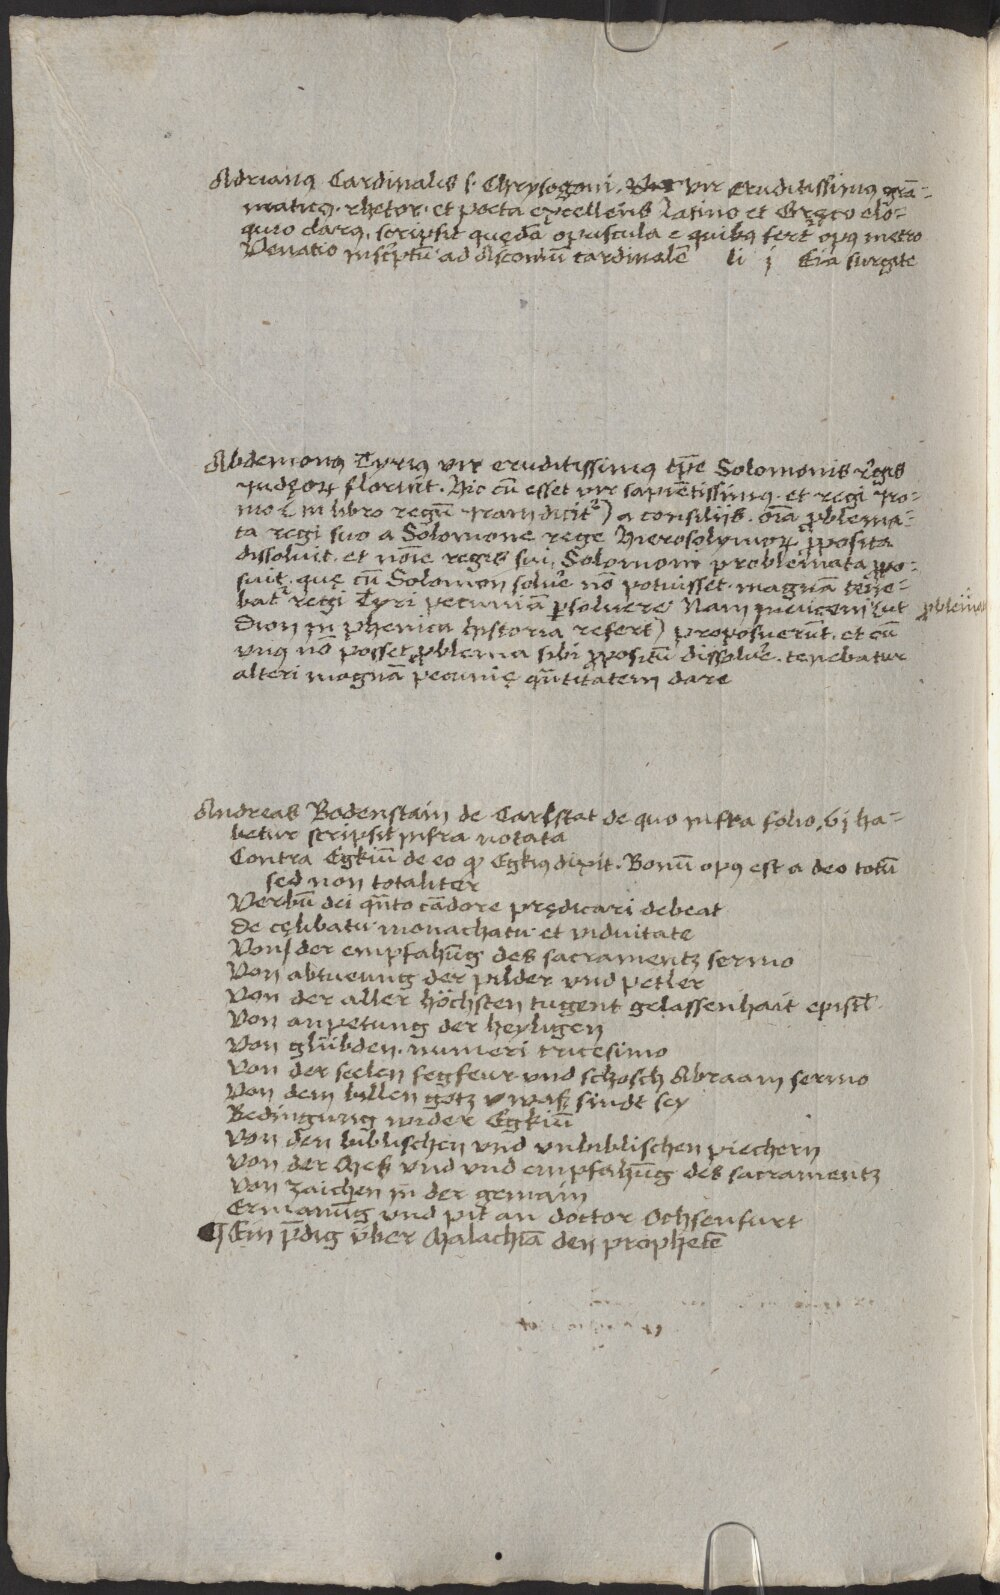 Adrianꝰ Cardinalis s. Chrysogoni. vir eruditissimꝰ grā-
maticꝰ. rhetor. et poeta excellens Latino et Gręco elo-
quio clarꝰ, scripsit quędā opuscula e quibꝰ fert̃ opꝰ metro
Venatio inscptū ad Asconiū cardinalē li j Eia surgite
Abdemonꝰ Tyriꝰ vir eruditissimꝰ tp̄e Solomonis regis
Judęoꝝ floruit. Hic cū esset vir sapiētissimꝰ et regi Iro-
mo ( in libro regū Iram dicit̃ ) a consilijs. oīa ꝓblema-
ta regi suo a Solomone rege Hierosolymoꝝ ꝓposita
dissoluit. et noīe regis sui, Solomoni problemata ꝓpo-
suit. quę cū Solomon soluē nō potuisset. magnā tene-
bat̃ regi Tyri pecuniā ꝑsoluere Nam inuicem ( ut ꝓblema
Dion in phenica historia refert ) proposuerūt. et cū
unꝰ nō posset ꝓblema sibi ꝓpositū dissoluē. tenebatur
alteri magnā pecunię qūtitatem dare
Andreas Bodenstain de Carlstat de quo infra folio. vj ha-
betur scripsit infra notata
Contra Egkiū de eo ꝙ Egkiꝰ dixit. Bonū opꝰ est a deo totū
sed non totaliter
Verbū dei qūto cādore prędicari debeat
De cęlibatu monachatu et viduitate
Von der empfahūg des sacramentz sermo
Von abtueung der pilder vnd petler
Von der aller höchsten tugent gelassenhait epistl̄
Von anpetung der heyligen
Von glübden. numeri tricesimo
Von der seelen fegfeur vnd schosch Abraam sermo
Von dem willen gotz waß sindt sey
Bedingung wider Egkiū
Von den biblischen vnd vnbiblischen piechern
Von der Meß vnd vnd empfahūg des sacramentz
Von zaichen in der gemain
Ermanūg vnd pit an doctor Ochsenfurt
¶ Ein p̄dig über Malachiā den prophetē